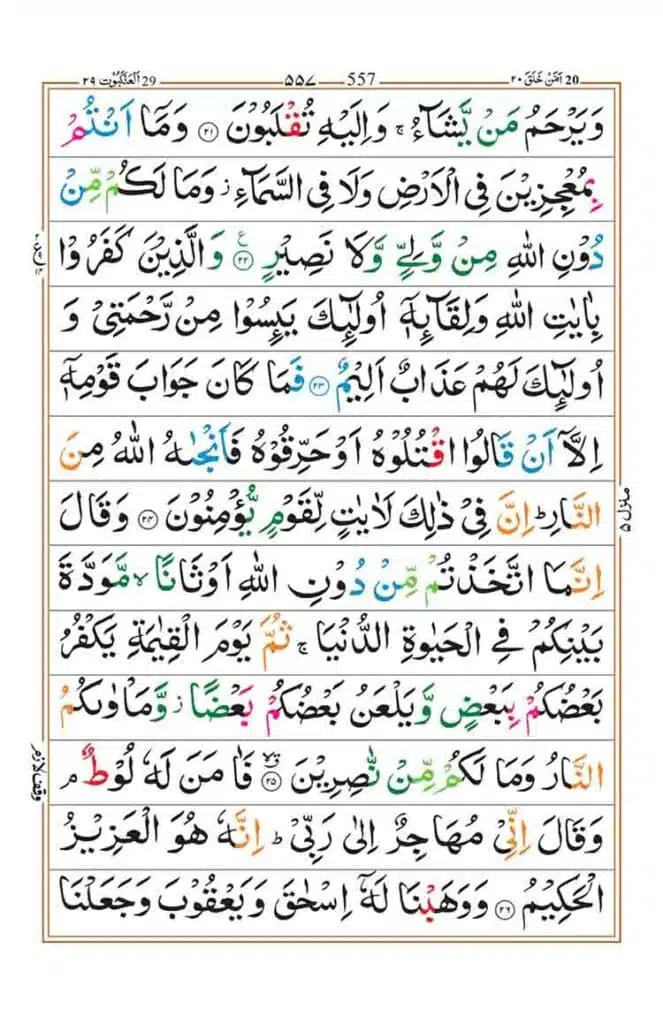 29 اَلْعَنْكَبُوْت ٢٩ 557 ۵۵۷ 20 اَمَّنْ خَلَقَ ٢٠
وَيَرْحَمُ مَنْ يَّشَآءُ ۚ وَاِلَيْهِ تُقْلَبُوْنَ ۝٢١ وَمَآ اَنْتُمْ
بِمُعْجِزِيْنَ فِى الْاَرْضِ وَلَا فِى السَّمَآءِ ؗ وَمَا لَكُمْ مِّنْ
دُوْنِ اللّٰهِ مِنْ وَّلِيٍّ وَّلَا نَصِيْرٍ ۝٢٢ۧ وَالَّذِيْنَ كَفَرُوْا
بِاٰيٰتِ اللّٰهِ وَلِقَآئِهٖٓ اُولٰٓئِكَ يَئِسُوْا مِنْ رَّحْمَتِيْ وَ
اُولٰٓئِكَ لَهُمْ عَذَابٌ اَلِيْمٌ ۝٢٣ فَمَا كَانَ جَوَابَ قَوْمِهٖٓ
اِلَّآ اَنْ قَالُوا اقْتُلُوْهُ اَوْ حَرِّقُوْهُ فَاَنْجٰىهُ اللّٰهُ مِنَ
النَّارِ ؕ اِنَّ فِيْ ذٰلِكَ لَاٰيٰتٍ لِّقَوْمٍ يُّؤْمِنُوْنَ ۝٢٤ وَقَالَ
اِنَّمَا اتَّخَذْتُمْ مِّنْ دُوْنِ اللّٰهِ اَوْثَانًا ۙ مَّوَدَّةَ
بَيْنِكُمْ فِى الْحَيٰوةِ الدُّنْيَا ۚ ثُمَّ يَوْمَ الْقِيٰمَةِ يَكْفُرُ
بَعْضُكُمْ بِبَعْضٍ وَّيَلْعَنُ بَعْضُكُمْ بَعْضًا ؗ وَّمَاْوٰىكُمُ
النَّارُ وَمَا لَكُمْ مِّنْ نّٰصِرِيْنَ ۝٢٥ فَاٰمَنَ لَهٗ لُوْطٌ ۘ
وَقَالَ اِنِّيْ مُهَاجِرٌ اِلٰى رَبِّيْ ؕ اِنَّهٗ هُوَ الْعَزِيْزُ
الْحَكِيْمُ ۝٢٦ وَوَهَبْنَا لَهٗٓ اِسْحٰقَ وَيَعْقُوْبَ وَجَعَلْنَا
منزل ۵
وقف لازم